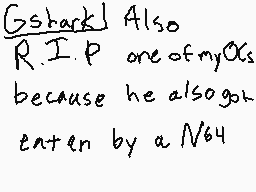 Gshark! Also
R.I.P one of my OCs
because he also got
eaten by a N64